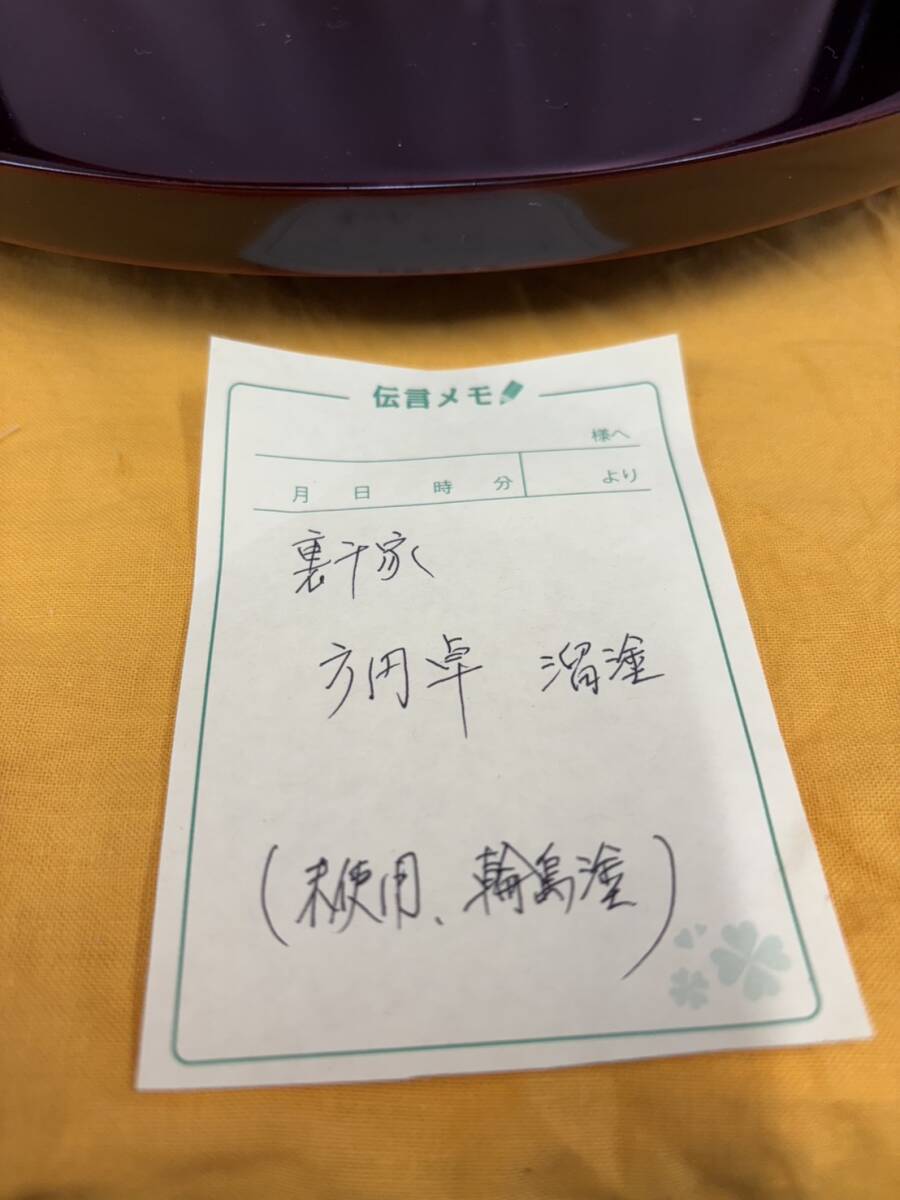 伝言メモ
様へ
月 日 時 分 より
裏千家
方円卓 溜塗
(未使用、輪島塗)